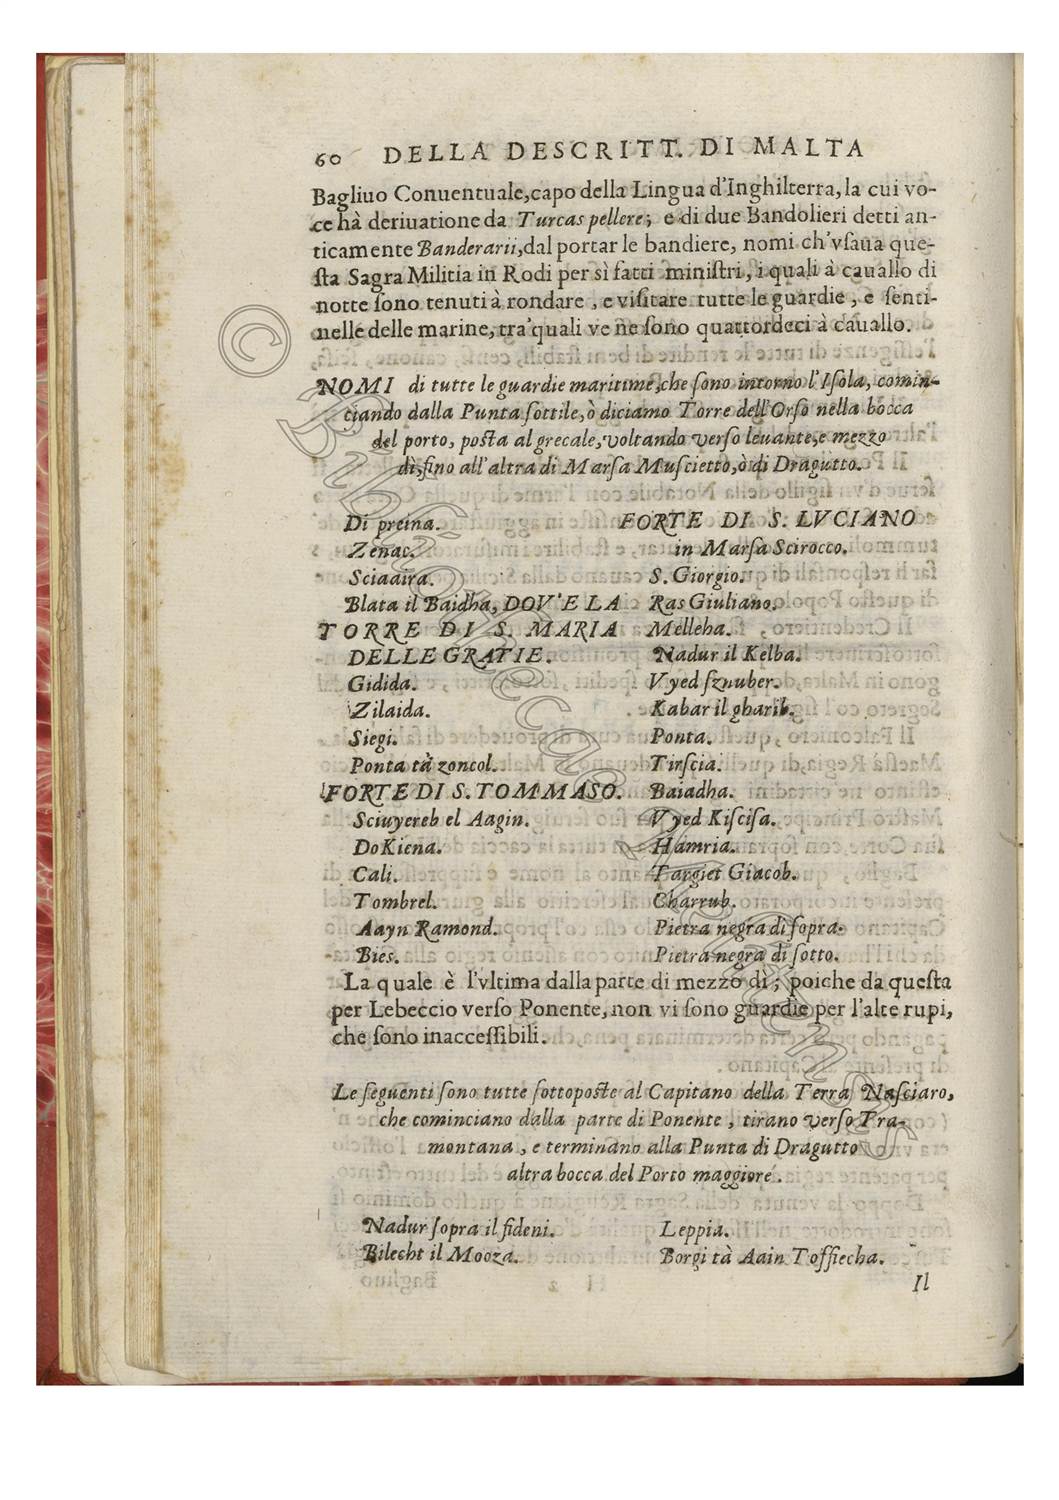 60 DELLA DESCRITT. DI MALTA
Bagliuo Conuentuale, capo della Lingua d'Inghilterra, la cui vo-
ce hà deriuatione da Turcas pellere; e di due Bandolieri detti an-
ticamente Banderarii, dal portar le bandiere, nomi ch'vſaua que-
ſta Sagra Militia in Rodi per sì fatti miniſtri, i quali à cauallo di
notte ſono tenuti à rondare, e viſitare tutte le guardie, e ſenti-
nelle delle marine, tra'quali ve ne ſono quattordeci à cauallo.
NOMI di tutte le guardie maritime, che ſono intorno l'Iſola, comin-
ciando dalla Punta ſottile, ò diciamo Torre dell'Orſo nella bocca
del porto, poſta al grecale, voltando verſo leuante, e mezzo
dì, fino all'altra di Marſa Muſcietto, ò di Dragutto.
Di preina.
Zenac.
Sciaaira.
Blata il Baidha, DOV'E LA
TORRE DI S. MARIA
DELLE GRATIE.
Gidida.
Zilaida.
Siegi.
Ponta tà zoncol.
FORTE DI S. TOMMASO.
Sciuyereb el Aagin.
DoKiena.
Cali.
Tombrel.
Aayn Ramond.
Bies.
FORTE DI S. LVCIANO
in Marſa Scirocco.
S. Giorgio.
Ras Giuliano.
Melleha.
Nadur il Kelba.
Vyed ſznuber.
Kabar il gharib.
Ponta.
Tirſcia.
Baiadha.
Vyed Kiſciſa.
Hamria.
Targiet Giacob.
Charrub.
Pietra negra di ſopra.
Pietra negra di ſotto.
La quale è l'vltima dalla parte di mezzo dì; poiche da queſta
per Lebeccio verſo Ponente, non vi ſono guardie per l'alte rupi,
che ſono inacceſſibili.
Le ſeguenti ſono tutte ſottopoſte al Capitano della Terra Naſciaro,
che cominciano dalla parte di Ponente, tirano verſo Tra-
montana, e terminano alla Punta di Dragutto
altra bocca del Porto maggiore.
Nadur ſopra il fideni.
Bilecht il Mooza.
Leppia.
Borgi tà Aain Toffiecha.
Il
© Bibliotheca Hertziana